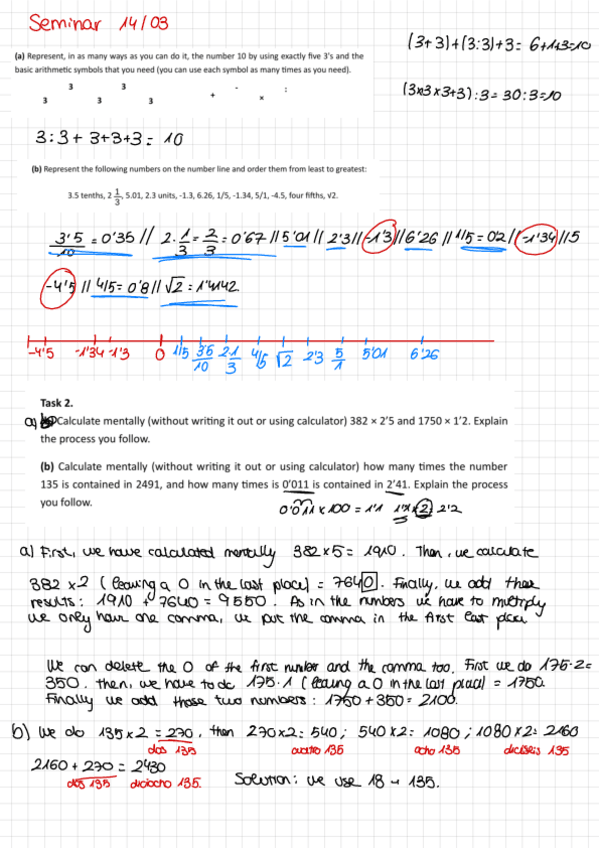 Seminar 14/03
(a) Represent, in as many ways as you can do it, the number 10 by using exactly five 3's and the
basic arithmetic symbols that you need (you can use each symbol as many times as you need).
3 3 - :
3 3 3 + ×
(3+3)+(3:3)+3= 6+1+3=10
(3x3x3+3):3=30:3=10
3:3+3+3+3= 10
(b) Represent the following numbers on the number line and order them from least to greatest:
3.5 tenths, 2 1/3, 5.01, 2.3 units, -1.3, 6.26, 1/5, -1.34, 5/1, -4.5, four fifths, √2.
3'5/10 = 0'35 // 2·1/3 = 2/3 = 0'67 // 5'01 // 2'3 // -1'3 // 6'26 // 1/5=0'2 // -1'34 // 5
-4'5 // 4/5=0'8 // √2 = 1'4142
-4'5 -1'34 -1'3 0 1/5 3'5/10 2·1/3 4/5 √2 2'3 5/1 5'01 6'26
Task 2.
a) Calculate mentally (without writing it out or using calculator) 382 × 2'5 and 1750 × 1'2. Explain
the process you follow.
(b) Calculate mentally (without writing it out or using calculator) how many times the number
135 is contained in 2491, and how many times is 0'011 is contained in 2'41. Explain the process
you follow.
0'011 x 100 = 1'1 1'1 x 2 2'2
a) First, we have calculated mentally 382x5 = 1910. Then, we calculate
382 x2 (leaving a 0 in the last place) = 7640. Finally, we add these
results: 1910 + 7640 = 9550. As in the numbers we have to multiply
we only have one comma, we put the comma in the first last place
We can delete the 0 of the first number and the comma too. First we do 175·2=
350. Then, we have to do 175·1 (leaving a 0 in the last place) = 1750.
Finally we add those two numbers: 1750 + 350 = 2100.
b) We do 135x2 = 270, then 270x2= 540; 540x2= 1080; 1080x2= 2160
dos 135 cuatro 135 ocho 135 dieciséis 135
2160 + 270 = 2430
dos 135 dieciocho 135.
Solution: we use 18 - 135.